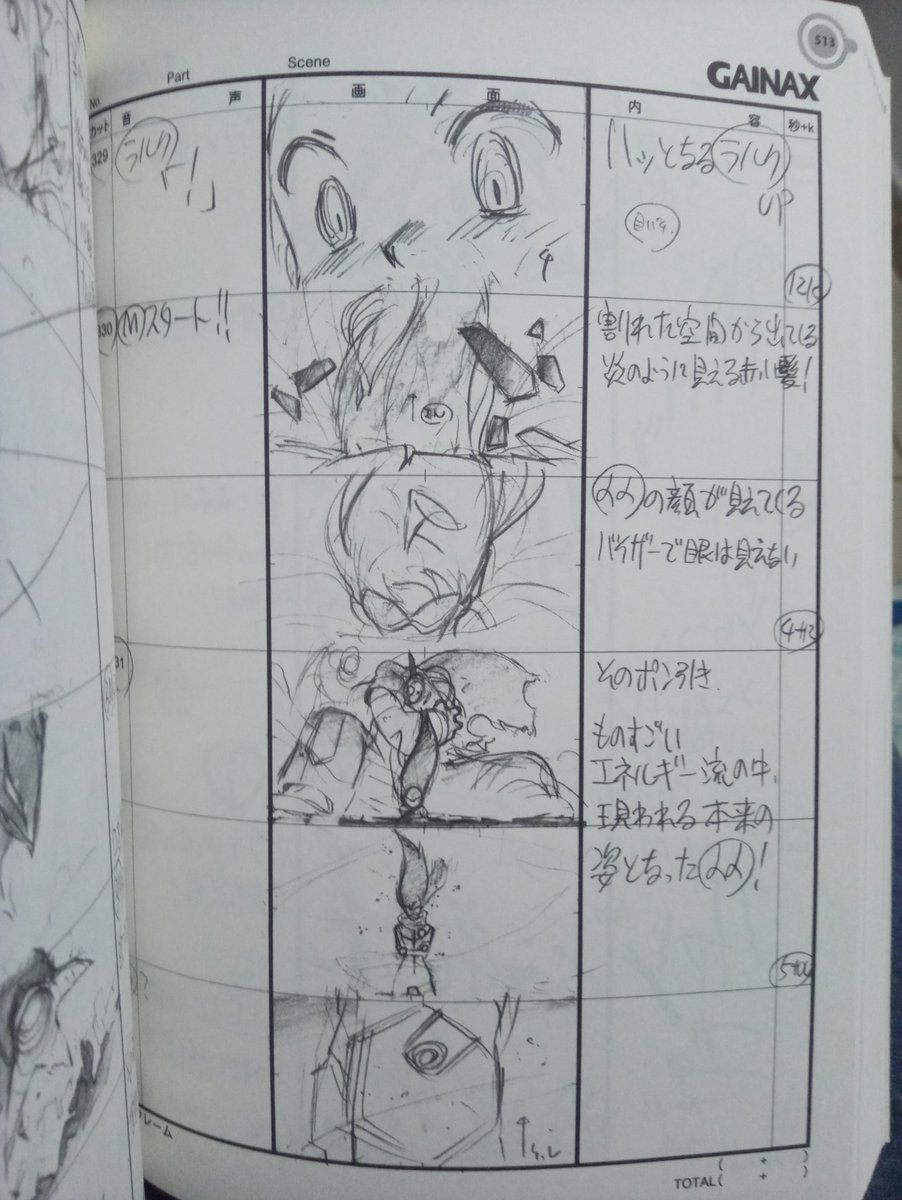 513
GAINAX
Part
Scene
No.
カット
音
声
画
面
内
容
秒+k
329
ラルク
「ー!」
ハッとなるラルク
UP
目パチ
330
Mスタート!!
割れた空間から出てくる
炎のように見える赤い髪!
の顔が見えてくる
バイザーで眼は見えない
31
そのポン引き
ものすごい
エネルギー流の中、
現われる本来の
姿となった
レーム
TOTAL( + )
( + )